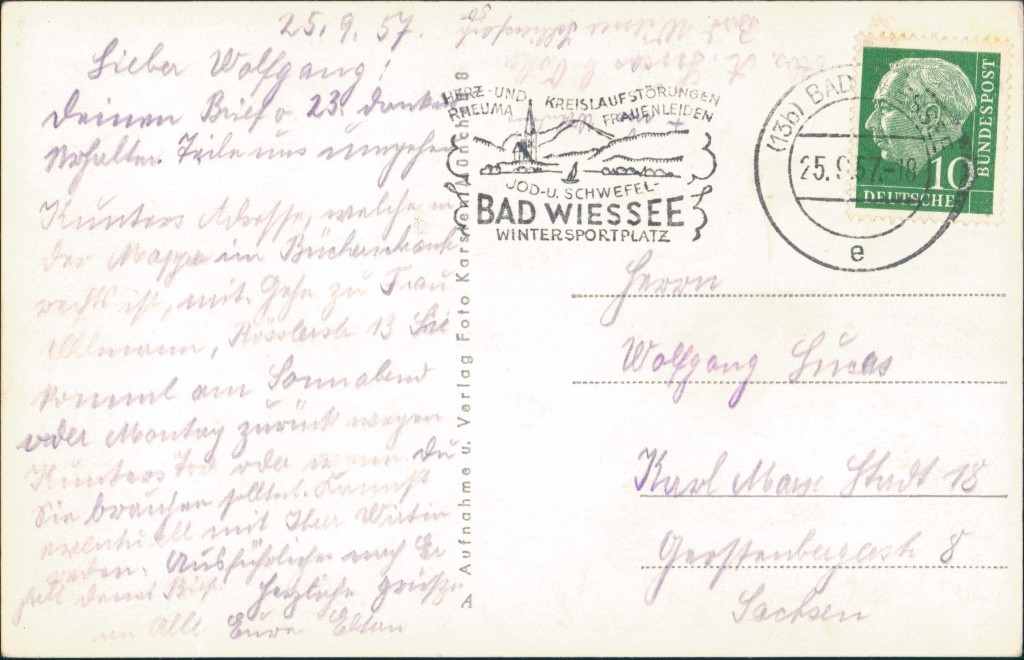 25. 9. 57.
Lieber Wolfgang!
Deinen Brief v. 23. dankend
erhalten. Teile uns umgehend
Kunters Adresse, welche in
der Mappe im Bücherschrank
rechts ist, mit. Gehe zu Frau
Ullmann, 13 Sie
kommt am Sonnabend
oder Montag zurück wegen
Kunters Tod oder wenn Du
Sie brauchen solltest. Kannst
eventuell mit Ihrer Wirtin
reden. Ausführlicher nach Er
halt deines Briefs. Herzliche Grüße
an Alle Eure Eltern
HERZ- UND KREISLAUFSTÖRUNGEN
RHEUMA FRAUENLEIDEN
JOD- U. SCHWEFEL-
BAD WIESSEE
WINTERSPORTPLATZ
(13b) BAD WIESSEE
25.9.57.-18
e
10
BUNDESPOST
DEUTSCHE
A Aufnahme u. Verlag Foto Karsten München 8
Herrn
Wolfgang Lucas
Karl Marx Stadt 18
Gerstenbergstr 8
Sachsen